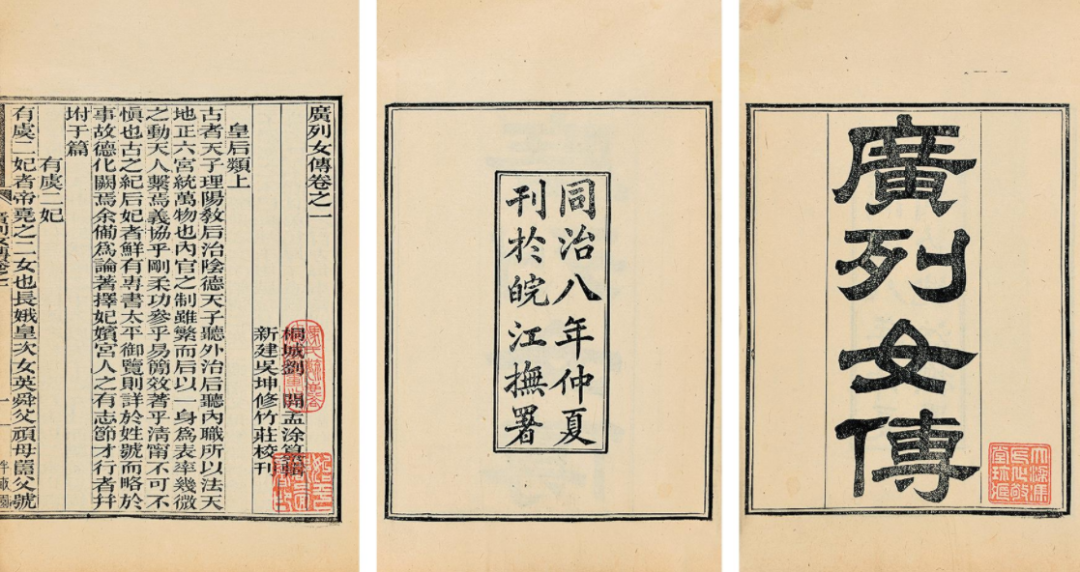 廣列女傳
同治八年仲夏
刊於皖江撫署
廣列女傳卷之一
桐城劉 開孟涂纂輯
新建吳坤修竹莊校刊
皇后類上
古者天子理陽敎后治陰德天子聽外治后聽內職所以法天
地正六宮統萬物也內官之制雖繁而后以一身爲表率幾微
之動天人繫焉義協乎剛柔功參乎易簡效著乎淸甯不可不
愼也古之紀后妃者鮮有專書太平御覽則詳於姓號而略於
事故德化闕焉余備爲論著擇妃嬪宮人之有志節才行者幷
坿于篇
有虞二妃
有虞二妃者帝堯之二女也長娥皇次女英舜父頑母嚚父號